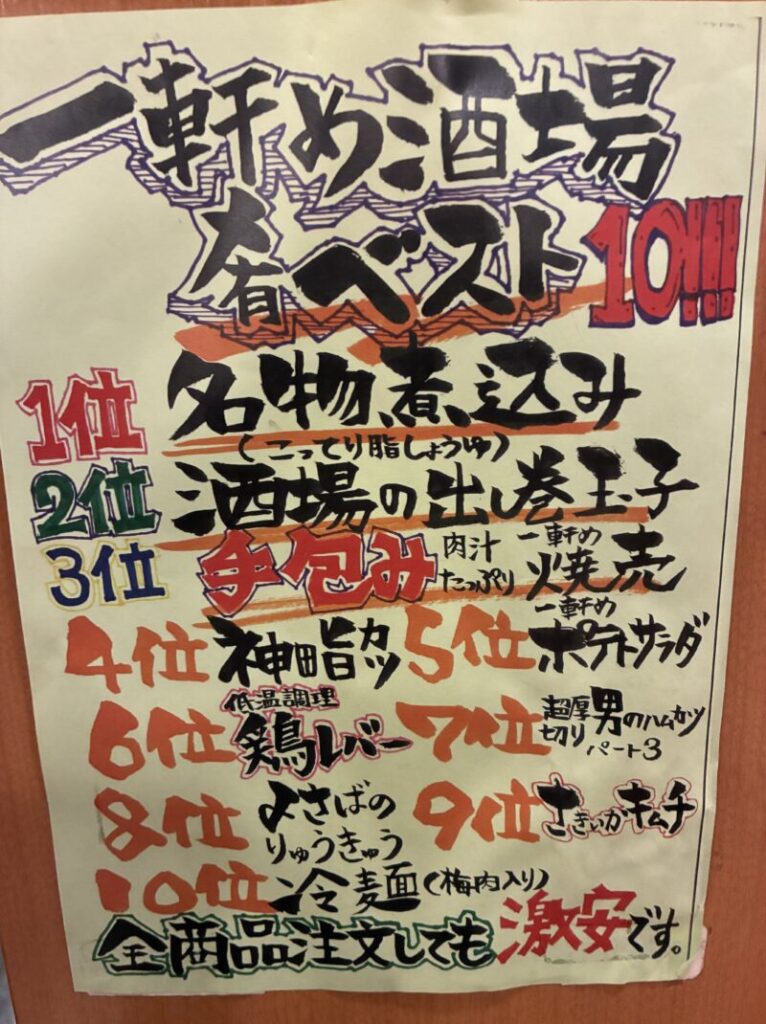 一軒め酒場
肴ベスト10!!!
1位 名物煮込み
(こってり脂しょうゆ)
2位 酒場の出し巻玉子
3位 手包み 肉汁たっぷり 一軒め焼売
4位 神田旨カツ 5位 一軒めポテトサラダ
6位 低温調理鶏レバー 7位 超厚切り男のハムカツパート3
8位 よさばのりゅうきゅう 9位 さきいかキムチ
10位 冷麺(梅肉入り)
全商品注文しても激安です。